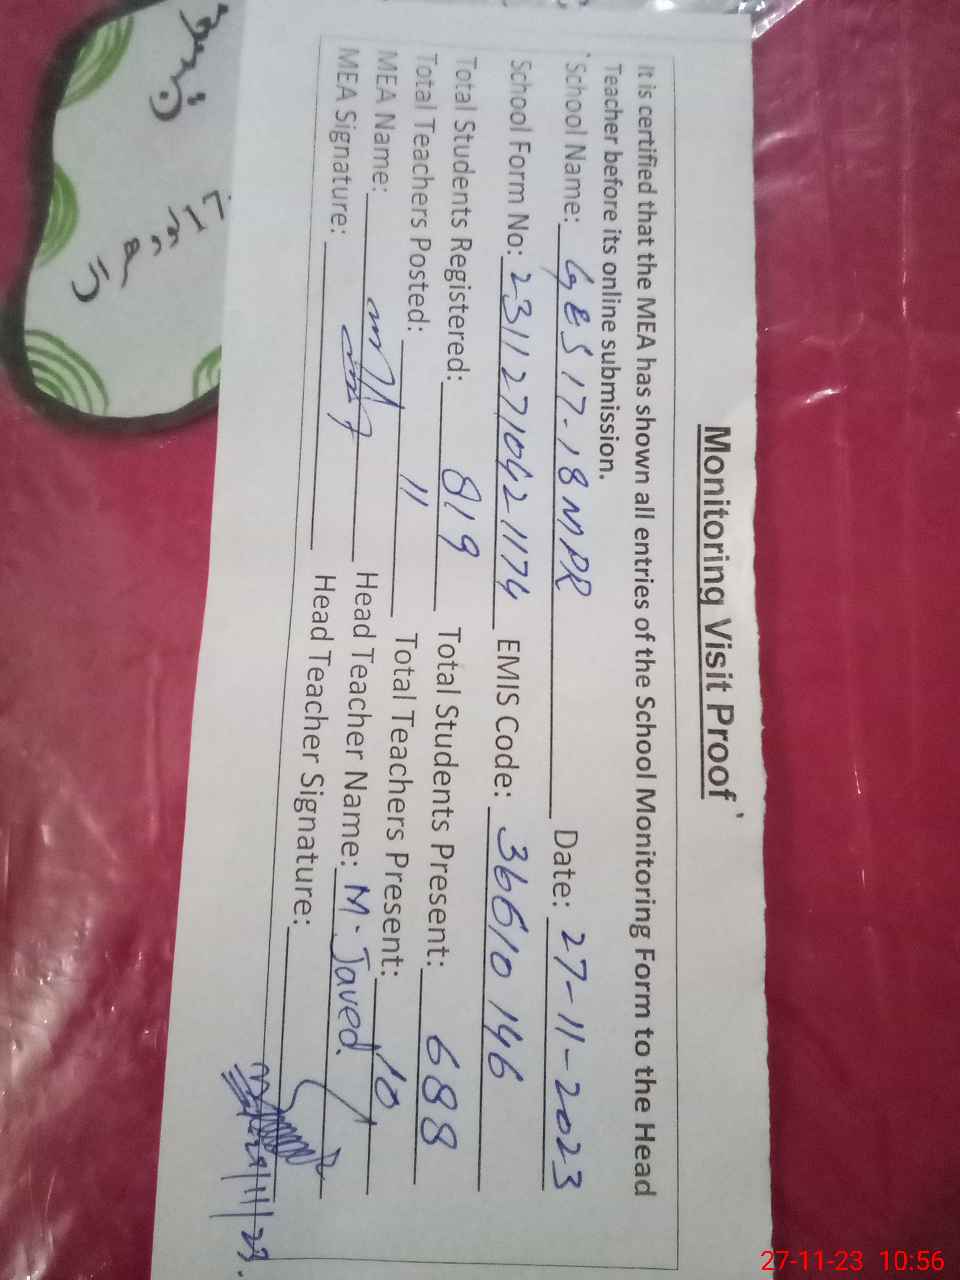 Monitoring Visit Proof
It is certified that the MEA has shown all entries of the School Monitoring Form to the Head
Teacher before its online submission.
School Name: GES 17-18 MPR Date: 27-11-2023
School Form No: 2311271042 1174 EMIS Code: 36610146
Total Students Registered: 819 Total Students Present: 688
Total Teachers Posted: 11 Total Teachers Present: 10
MEA Name: Head Teacher Name: M. Javed
MEA Signature: Head Teacher Signature:
27-11-23 10:56